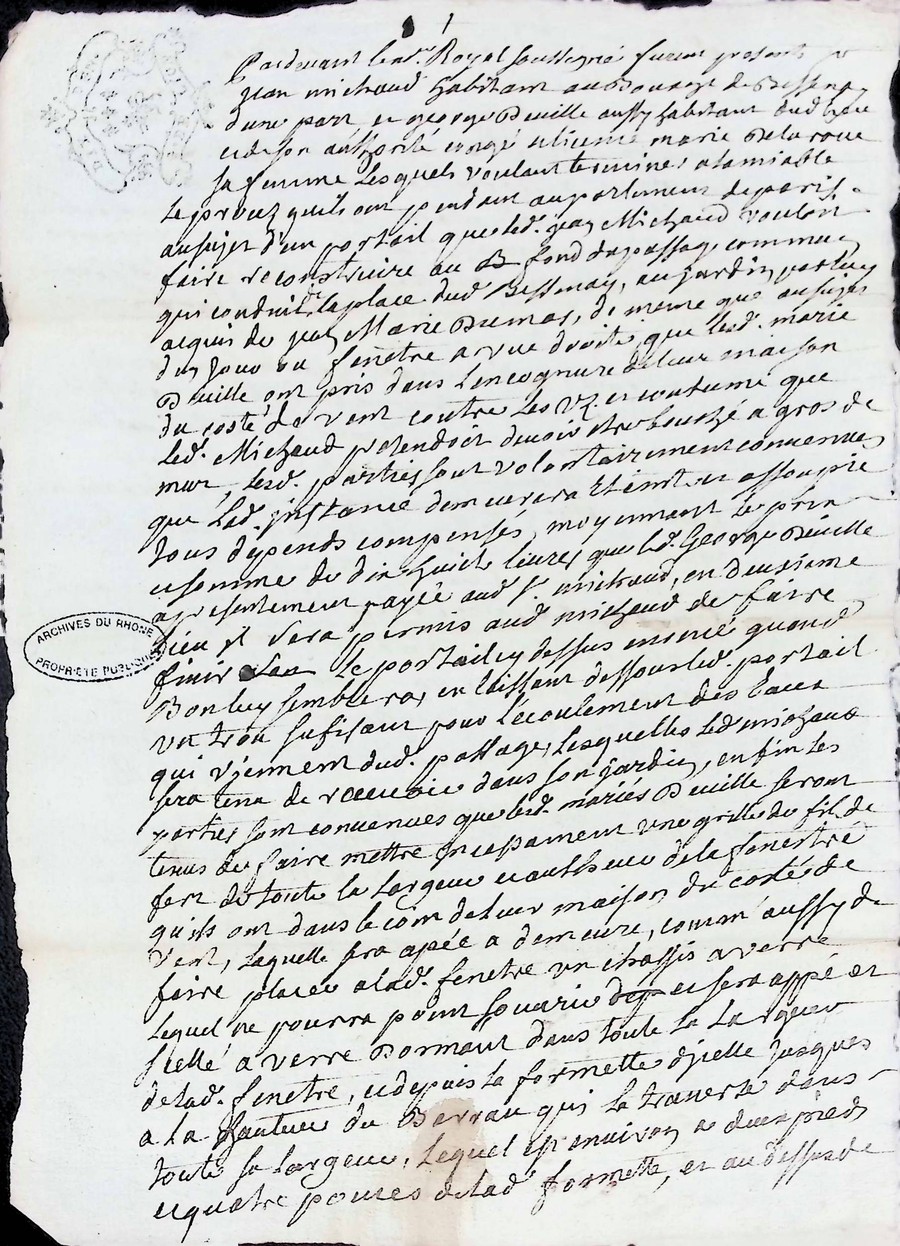 1
Pardevant le no.re Royal soussigné furent presents
jean michaud habitant au Bourg de Bessenay
d'une part et george Deville aussy habitant dud lieu
et de son authorité congé et licence marie Delaroue
sa femme Lesquels voulant terminer a lamiable
Le procez quils ont pendant au parlement de paris
au sujet d'un portail que led. jean Michaud vouloit
faire reconstruire au fond du passage commun
qui conduit de la place dud Bessenay, au jardin par luy
acquis de jean Marie Dumas, de meme que au sujet
d'un jour ou fenetre a vue droite que lesd. marié
Deville ont pris dans L'encognure de leur maison
du costé de vent contre Les us et coutume que
led. Michaud pretendoit devoir etre bouché a gros de
mur, Lesd. parties sont volontairement convenues
que Lad. instance demeurera Eteinte et assoupie
tous depends compensés, moyennant le prix
et somme de dix huit livres que led. George Deville
a presentement payée aud sr. michaud, en deuxieme
Lieu il sera permis aud michaud de faire
finir le portail cy dessus enoncé quand
Bon luy semblera, en laissant dessous led. portail
un trou sufisant pour L'écoulement des Eaux
qui viennent dud. passage, Lesquelles led michaud
sera tenu de recevoir dans son jardin, enfin les
parties sont convenues que lesd. mariés Deville seront
tenus de faire mettre incessament une grille de fil de
fer de toute la Largeur et autheur de la fenestre
qu'ils ont dans le coin de leur maison du costé de
vent, Laquelle sera apée a demeure, comm'aussy de
faire placer a lad. fenetre un chassis a verre
Lequel ne pourra point souvrir et sera appé et
scellé a verre Dormant dans toute la Largeur
de lad. fenetre, et depuis la formette d'jcelle jusques
a la hauteur du Barrau qui la traverse dans
toute sa largeur, Lequel est environ a deux pieds
et quatre pouces de lad formette, et au dessus de
ARCHIVES DU RHONE
PROPRIETE PUBLIQUE